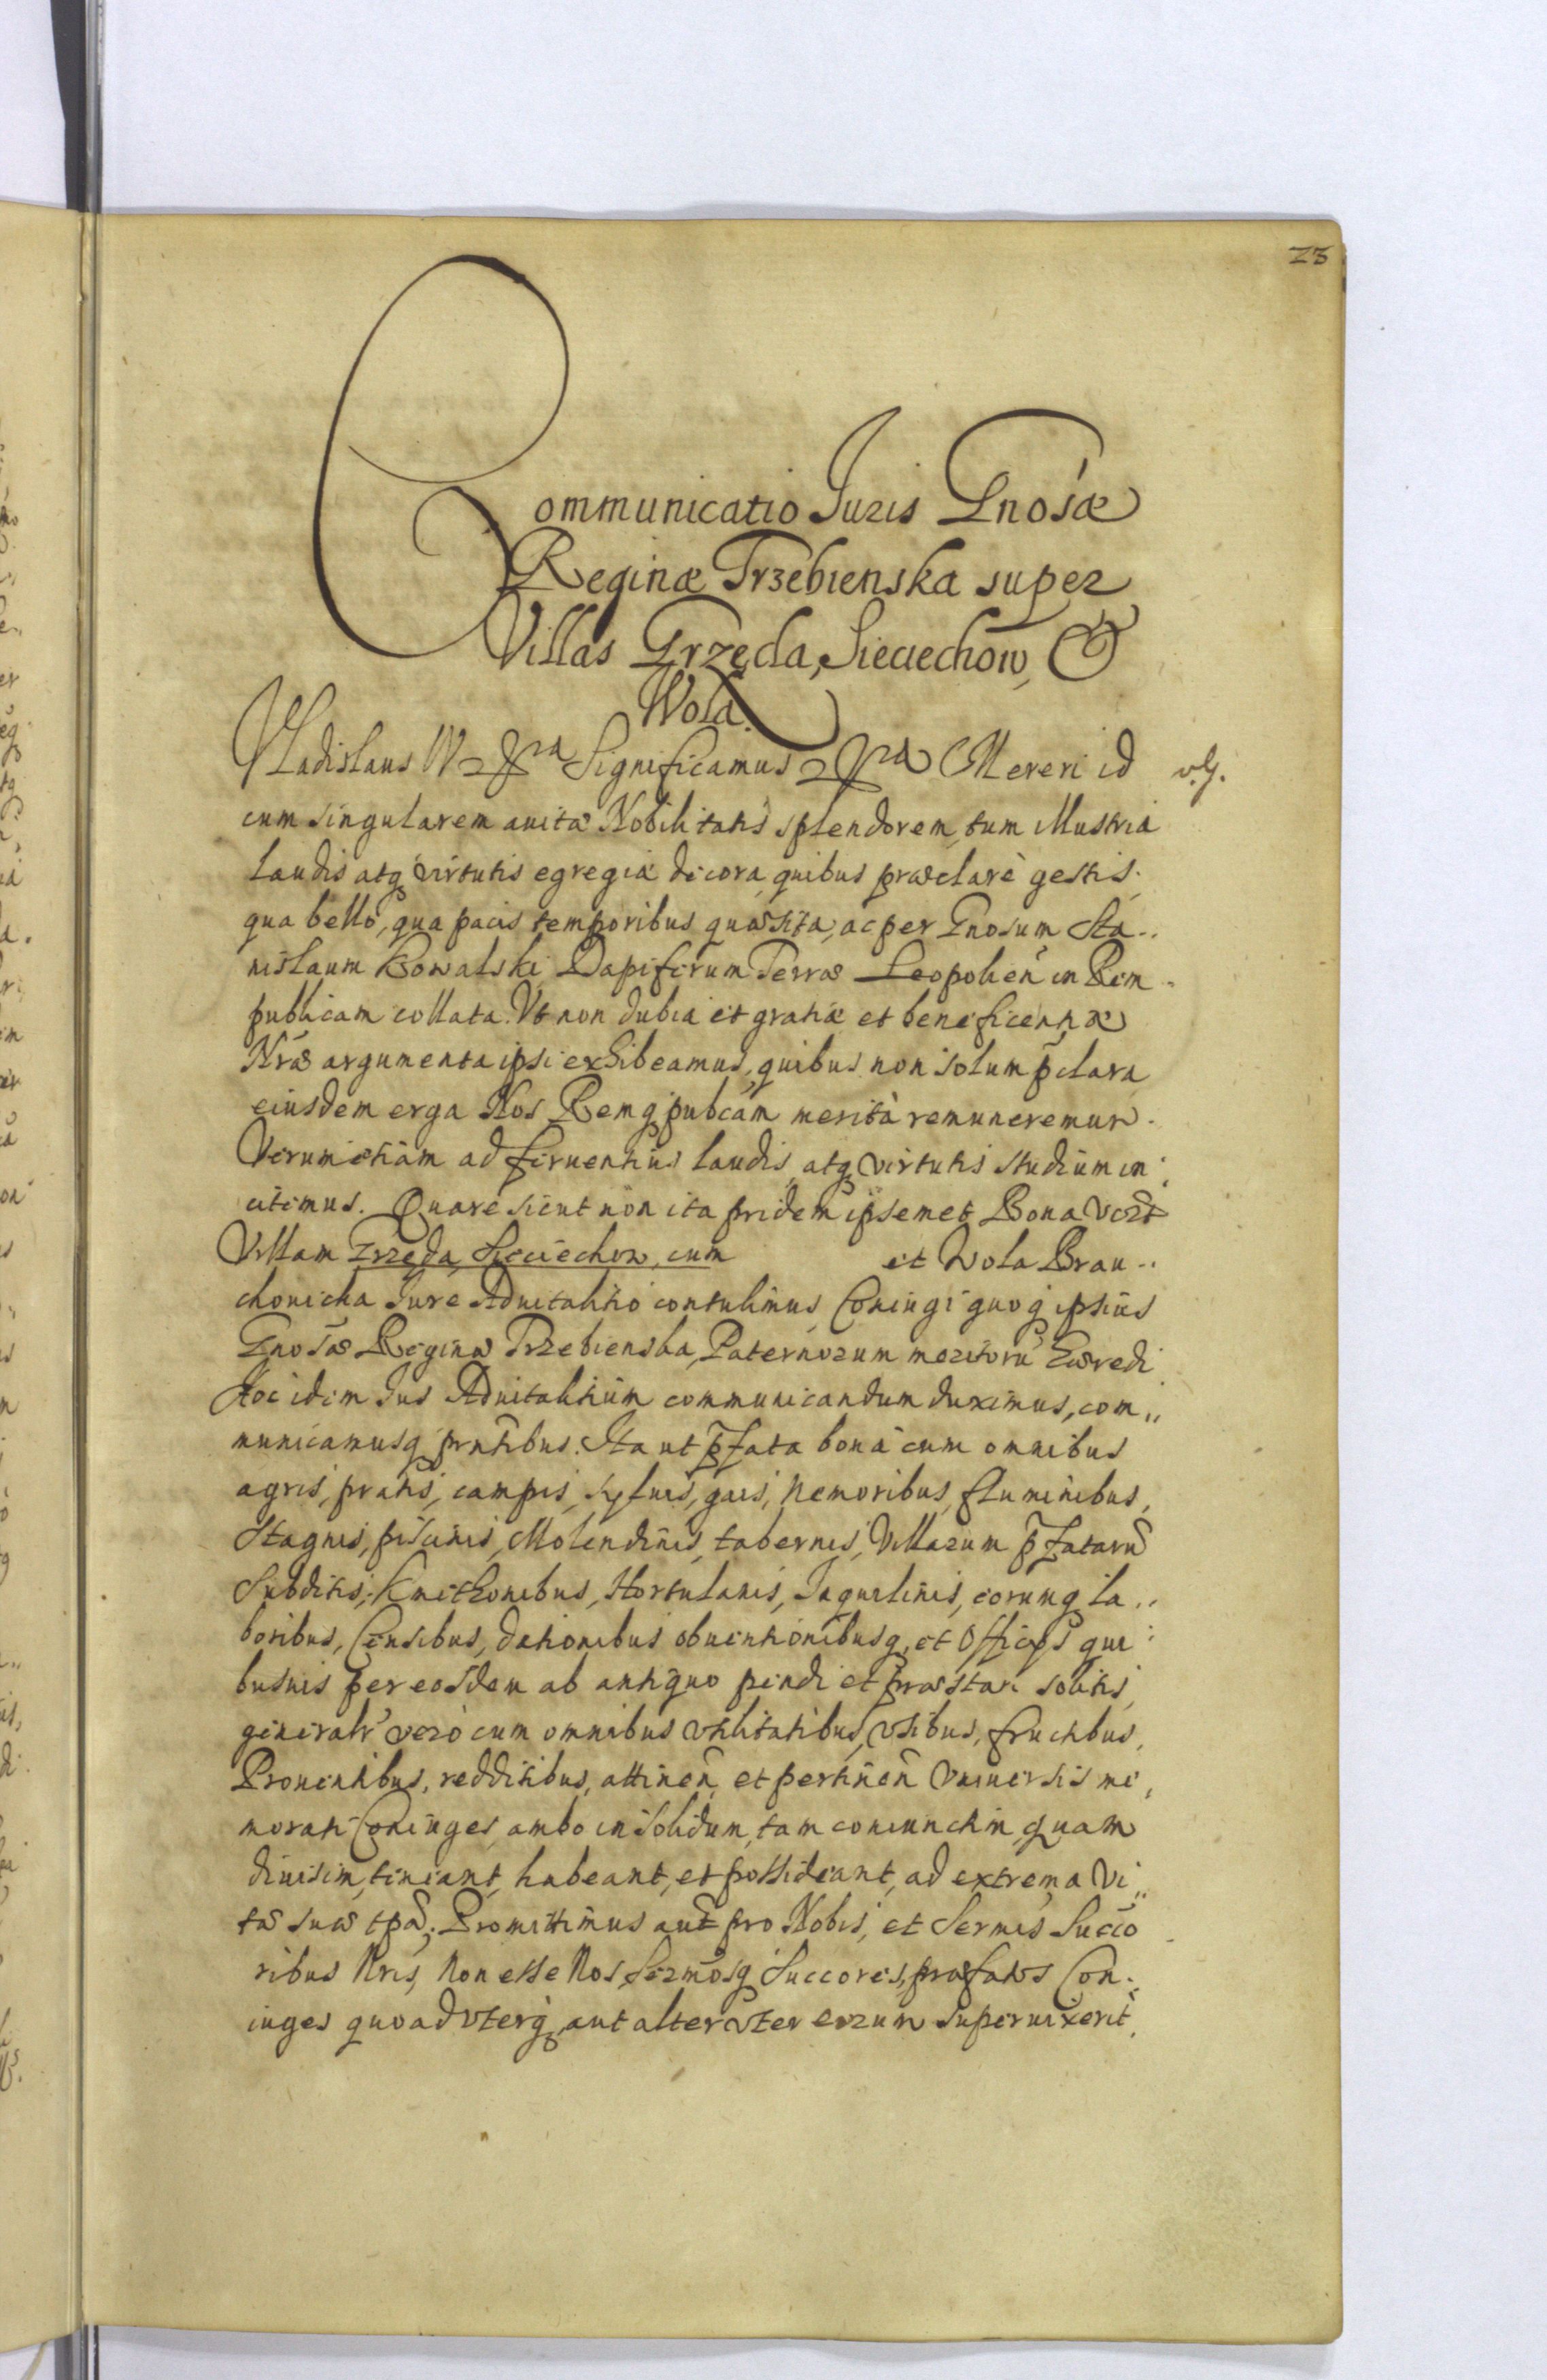 23
Communicatio Juris Gnosæ
Reginæ Trzebienska super
Villas Grzęda, Sieciechow, &
Wola.
Vladislaus IV &ra Significamus &ra Mereri id
cum singularem auitæ Nobilitatis splendorem, tum illustria
laudis atq virtutis egregia decora, quibus præclarè gestis
qua bello, qua pacis temporibus quæsita, ac per Gnosum Sta..
nislaum Kowalski Dapiferum Terræ Leopolien in Rem
publicam collata. Vt non dubia et gratiæ et beneficentiæ
Nræ argumenta ipsi exhibeamus, quibus non solum p̄clara
eiusdem erga Nos Remq pubcam merita remuneremur.
Verum etiam ad feruentius laudis atq virtutis studium in
citemus. Quare sicut non ita pridem ipsemet Bona
Villam Grzęda, Sieciechow, cum et Wola Brau..
chonicka Jure Aduitalitio contulimus, Coniugi quoq ipsius
Gnosæ Reginæ Trzebienska, Paternorum meritorū hæredi
Hoc idem Jus Aduitalitium communicandum duximus, com,,
municamusq pntibus. Ita ut p̄fata bona cum omnibus
agris, pratis, campis, syluis, gais, nemoribus, fluminibus,
Stagnis, piscinis, Molendinis, tabernis, Villarum p̄fatarū
Subditis, Kmethonibus, Hortulanis, Inquilinis, eorumq la..
boribus, Censibus, dationibus obuentionibusq, et Officijs qui
busuis per eosdem ab antiquo pendi et præstari solitis,
generalr vero cum omnibus vtilitatibus, vsibus, fructibus,
Prouentibus, redditibus, attinen et pertinen vniuersis me,
morati Coniuges ambo insolidum, tam coniunctim quam
diuisim, teneant, habeant, et possideant, ad extrema vi,,
tæ suæ tpa. Promittimus aut pro Nobis, et Sermis Succo
ribus Nris, Non esse Nos, Sermosq Succores, præfatos Con..
iuges quoad vterq aut alteruter eorum superuixerit,